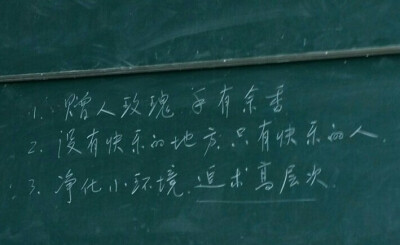 1. 赠人玫瑰 手有余香
2. 没有快乐的地方,只有快乐的人.
3. 净化小环境.追求高层次.